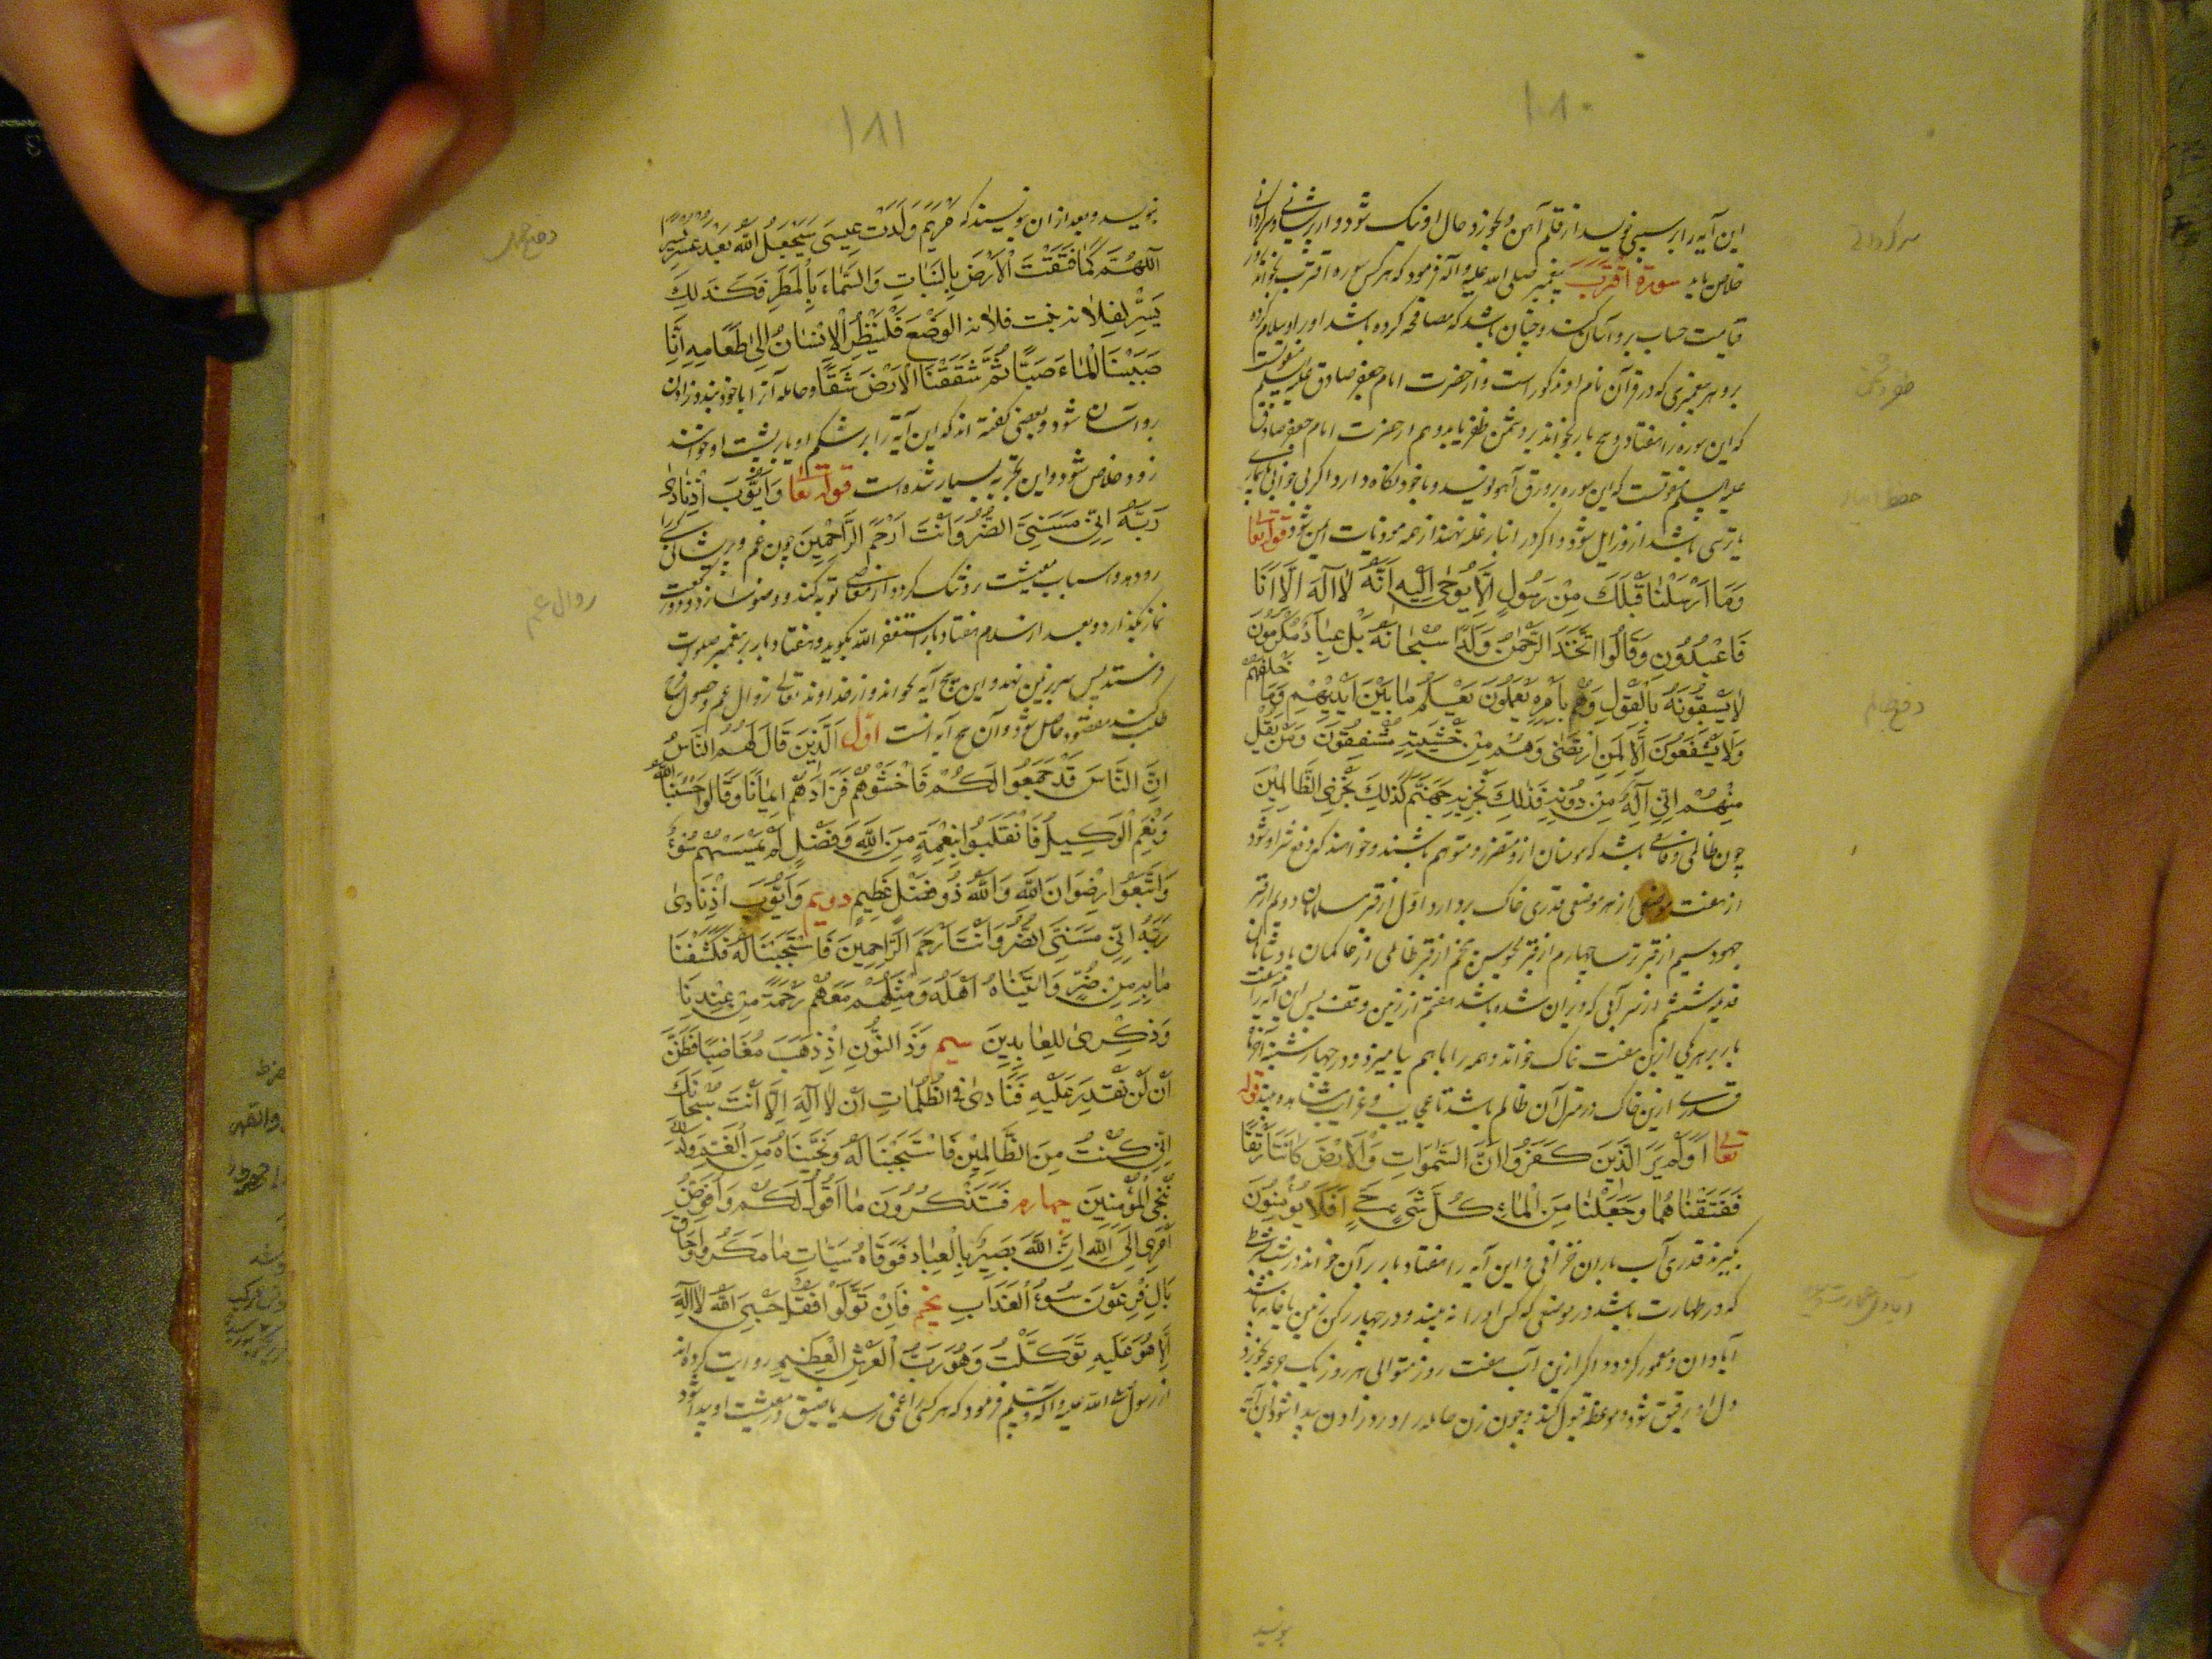 ۱۸۰
این آیه را بر سیبی نویسد از قلم آهن و بخورد حال او نیک شود و از پریشانی و سرگردانی
خلاص یابد سورة اقترب پیغمبر صلی الله علیه و آله فرمود که هر کس سوره اقترب بخواند
قیامت حساب برو آسان کنند و چنان باشد که مصافحه کرده باشد اورا و سلام کرده
برو هر پیغمبری که در قرآن نام او مذکور است و از حضرت امام جعفر صادق علیه السلم منقولست
که این سوره را هفتاد و پنج بار بخواند بر دشمن ظفر یابد و هم از حضرت امام جعفر صادق
علیه السلم منقولست که این سوره بر ورق آهو نویسد و با خود نگاه دارد اگر بی خوابی
یا ترسی باشد ازو زایل شود و اگر در انبار غله نهند از همه موذیات ایمن شود قوله تعا
وَمَا اَرْسَلْنَا قَبْلَكَ مِنْ رَسُولٍ اِلَّا يُوحٰى اِلَيْهِ اَنَّهُ لَا اِلٰهَ اِلَّا اَنَا
فَاعْبُدُونِ وَقَالُوا اتَّخَذَ الرَّحْمٰنُ وَلَدًا سُبْحَانَهُ بَلْ عِبَادٌ مُكْرَمُونَ
لَا يَسْبِقُونَهُ بِالْقَوْلِ وَهُمْ بِاَمْرِهِ يَعْمَلُونَ يَعْلَمُ مَا بَيْنَ اَيْدِيهِمْ وَمَا خَلْفَهُمْ
وَلَا يَشْفَعُونَ اِلَّا لِمَنِ ارْتَضٰى وَهُمْ مِنْ خَشْيَتِهِ مُشْفِقُونَ وَمَنْ يَقُلْ
مِنْهُمْ اِنِّي اِلٰهٌ مِنْ دُونِهِ فَذٰلِكَ نَجْزِيهِ جَهَنَّمَ كَذٰلِكَ نَجْزِي الظَّالِمِينَ
چون ظالمی و فاسقی باشد که مومنان ازو متضرر و متوهم باشند و خواهند که دفع شر او شود
از هفت موضع از هر موضعی قدری خاک بردارد اول از قبر مسلمانان دویم از قبر
جهود سیم از قبر ترسا چهارم از قبر مجوس پنجم از قبر ظالمی از حاکمان پادشاهان
قدیم ششم از سر آبی که ویران شده باشد هفتم از زمین وقف پس این آیه را هفت
بار بر هر یکی ازین هفت خاک خواند و همه را با هم بیامیزد و در چهار شنبه آخر ماه
قدری ازین خاک در منزل آن ظالم باشد تا عجایب و غرایب مشاهده بیند قوله
تعا اَوَلَمْ يَرَ الَّذِينَ كَفَرُوا اَنَّ السَّمٰوَاتِ وَالْاَرْضَ كَانَتَا رَتْقًا
فَفَتَقْنَاهُمَا وَجَعَلْنَا مِنَ الْمَاءِ كُلَّ شَيْءٍ حَيٍّ اَفَلَا يُؤْمِنُونَ
بگیرند قدری آب باران خزانی و این آیه را هفتاد بار بر آن خواند در شب بشرط
که در طهارت باشد در موضعی که کس اورا نه بیند و در چهار رکن زمین یا خانه پاشد
آبادان و معمور گردد و اگر ازین آب هفت روز متوالی هر روز یک جرعه بخورد
دل او رقیق شود و موعظه قبول کند و چون زن حامله را درد زادن پیدا شود این آیه
بنویسد
سرگردانی
ظفر دشمن
حفظ انبار
دفع ظالم
۱۸۱
بنویسد و بعد از ان بنویسند که مَرْيَمُ وَلَدَتْ عِيسَى سَيَجْعَلُ اللهُ بَعْدَ عُسْرٍ يُسْرًا
اَللّٰهُمَّ كَمَا فَتَقْتَ الْاَرْضَ بِالنَّبَاتِ وَالسَّمَاءَ بِالْمَطَرِ فَكَذٰلِكَ
يَسِّرْ لِفلانه بنت فلانه الوَضْعَ فَلْيَنْظُرِ الْاِنْسَانُ اِلٰى طَعَامِهِ اَنَّا
صَبَبْنَا الْمَاءَ صَبًّا ثُمَّ شَقَقْنَا الْاَرْضَ شَقًّا و حامله آنرا با خود بندد زادن
برو آسان شود و بعضی گفته اند که این آیه را بر شکم او یا بر پشت او خوانند
زود خلاص شود و این تجربه بسیار شده است قوله تعا وَاَيُّوبَ اِذْ نَادٰى
رَبَّهُ اَنِّي مَسَّنِيَ الضُّرُّ وَاَنْتَ اَرْحَمُ الرَّاحِمِينَ چون غم و پریشانی کسی را
رو دهد و اسباب معیشت رو تنک گردد از معاصی توبه کند و وضو سازد و دو رکعت
نماز بگذارد و بعد از سلام هفتاد بار استغفر الله بگوید و هفتاد بار بر پیغمبر صلوات
فرستد پس سر بر زمین نهد و این پنج آیه بخواند و از خداوند تعالی زوال غم و حصول فرح
طلب کند مقصود حاصل شود و آن پنج آیه اینست اول اَلَّذِينَ قَالَ لَهُمُ النَّاسُ
اِنَّ النَّاسَ قَدْ جَمَعُوا لَكُمْ فَاخْشَوْهُمْ فَزَادَهُمْ اِيمَانًا وَقَالُوا حَسْبُنَا اللهُ
وَنِعْمَ الْوَكِيلُ فَانْقَلَبُوا بِنِعْمَةٍ مِنَ اللهِ وَفَضْلٍ لَمْ يَمْسَسْهُمْ سُوءٌ
وَاتَّبَعُوا رِضْوَانَ اللهِ وَاللهُ ذُو فَضْلٍ عَظِيمٍ دویم وَاَيُّوبَ اِذْ نَادٰى
رَبَّهُ اَنِّي مَسَّنِيَ الضُّرُّ وَاَنْتَ اَرْحَمُ الرَّاحِمِينَ فَاسْتَجَبْنَا لَهُ فَكَشَفْنَا
مَا بِهِ مِنْ ضُرٍّ وَاٰتَيْنَاهُ اَهْلَهُ وَمِثْلَهُمْ مَعَهُمْ رَحْمَةً مِنْ عِنْدِنَا
وَذِكْرٰى لِلْعَابِدِينَ سیم وَذَا النُّونِ اِذْ ذَهَبَ مُغَاضِبًا فَظَنَّ
اَنْ لَنْ نَقْدِرَ عَلَيْهِ فَنَادٰى فِي الظُّلُمَاتِ اَنْ لَا اِلٰهَ اِلَّا اَنْتَ سُبْحَانَكَ
اِنِّي كُنْتُ مِنَ الظَّالِمِينَ فَاسْتَجَبْنَا لَهُ وَنَجَّيْنَاهُ مِنَ الْغَمِّ وَكَذٰلِكَ
نُنْجِي الْمُؤْمِنِينَ چهارم فَسَتَذْكُرُونَ مَا اَقُولُ لَكُمْ وَاُفَوِّضُ
اَمْرِي اِلَى اللهِ اِنَّ اللهَ بَصِيرٌ بِالْعِبَادِ فَوَقَاهُ سَيِّئَاتِ مَا مَكَرُوا وَحَاقَ
بِاٰلِ فِرْعَوْنَ سُوءُ الْعَذَابِ پنجم فَاِنْ تَوَلَّوْا فَقُلْ حَسْبِيَ اللهُ لَا اِلٰهَ
اِلَّا هُوَ عَلَيْهِ تَوَكَّلْتُ وَهُوَ رَبُّ الْعَرْشِ الْعَظِيمِ روایت کرده اند
از رسول صلی الله علیه و آله وسلم فرمود که هر کرا غمی رسد یا ضیق در معیشت او پیدا شود
زوال غم